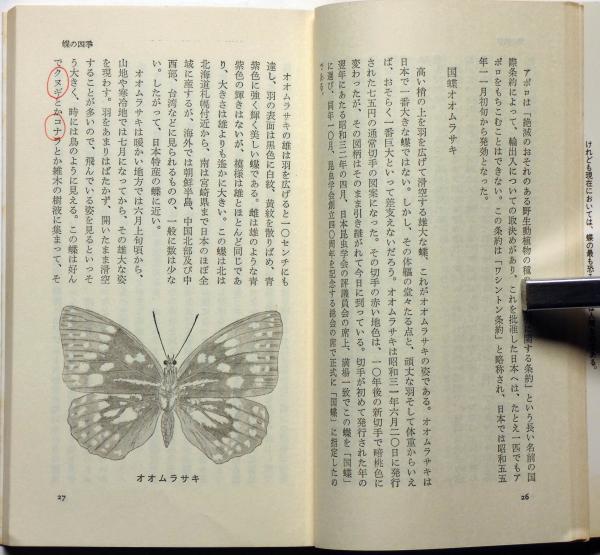 けれども現在においては、蝶の最も恐
である。
アポロは「絶滅のおそれのある野生動植物の種の
に関する条約」という長い名前の国
際条約によって、輸出入についての取決めがあり、これを批准した日本へは、たとえ一匹でもア
ポロをもちこむことはできない。この条約は「ワシントン条約」と略称され、日本では昭和五五
年一一月初旬から発効となった。
国蝶オオムラサキ
高い梢の上を羽を広げて滑空する雄大な蝶、これがオオムラサキの姿である。オオムラサキは
日本で一番大きな蝶ではない。しかし、その体軀の堂々たる点と、頑丈な羽そして体重からいえ
ば、おそらく一番巨大といって差支えないだろう。オオムラサキは昭和三一年六月二〇日に発行
された七五円の通常切手の図案になった。その切手の赤い地色は、一〇年後の新切手で暗桃色に
変わったが、その図柄はそのまま引き継がれて今日に到っている。切手が初めて発行された年の
翌年にあたる昭和三二年の四月、日本昆虫学会の評議員会の席上、満場一致でこの蝶を「国蝶」
に選び、同年一〇月、昆虫学会創立四〇周年を記念する総会の席で正式に「国蝶」に指定したの
である。
26
蝶の四季
オオムラサキの雄は羽を広げると一〇センチにも
達し、羽の表面は黒色に白紋、黄紋を散りばめ、青
紫色に強く輝く美しい蝶である。雌は雄のような青
紫色の輝きはないが、模様は雄とほとんど同じであ
り、大きさは雄よりも遙かに大きい。この蝶は北は
北海道札幌付近から、南は宮崎県まで日本のほぼ全
域に産するが、海外では朝鮮半島、中国北部及び中
西部、台湾などに見られるものの、一般に数は少な
い。したがって、日本特産の蝶に近い。
オオムラサキは暖かい地方では六月上旬頃から、
山地や寒冷地では七月になってから、その雄大な姿
を現わす。羽をあまりはばたかず、開いたまま滑空
することが多いので、飛んでいる姿を見るといっそ
う大きく、時には鳥のように見える。この蝶は好ん
でクヌギとかコナラとか雑木の樹液に集まって、そ
オオムラサキ
27